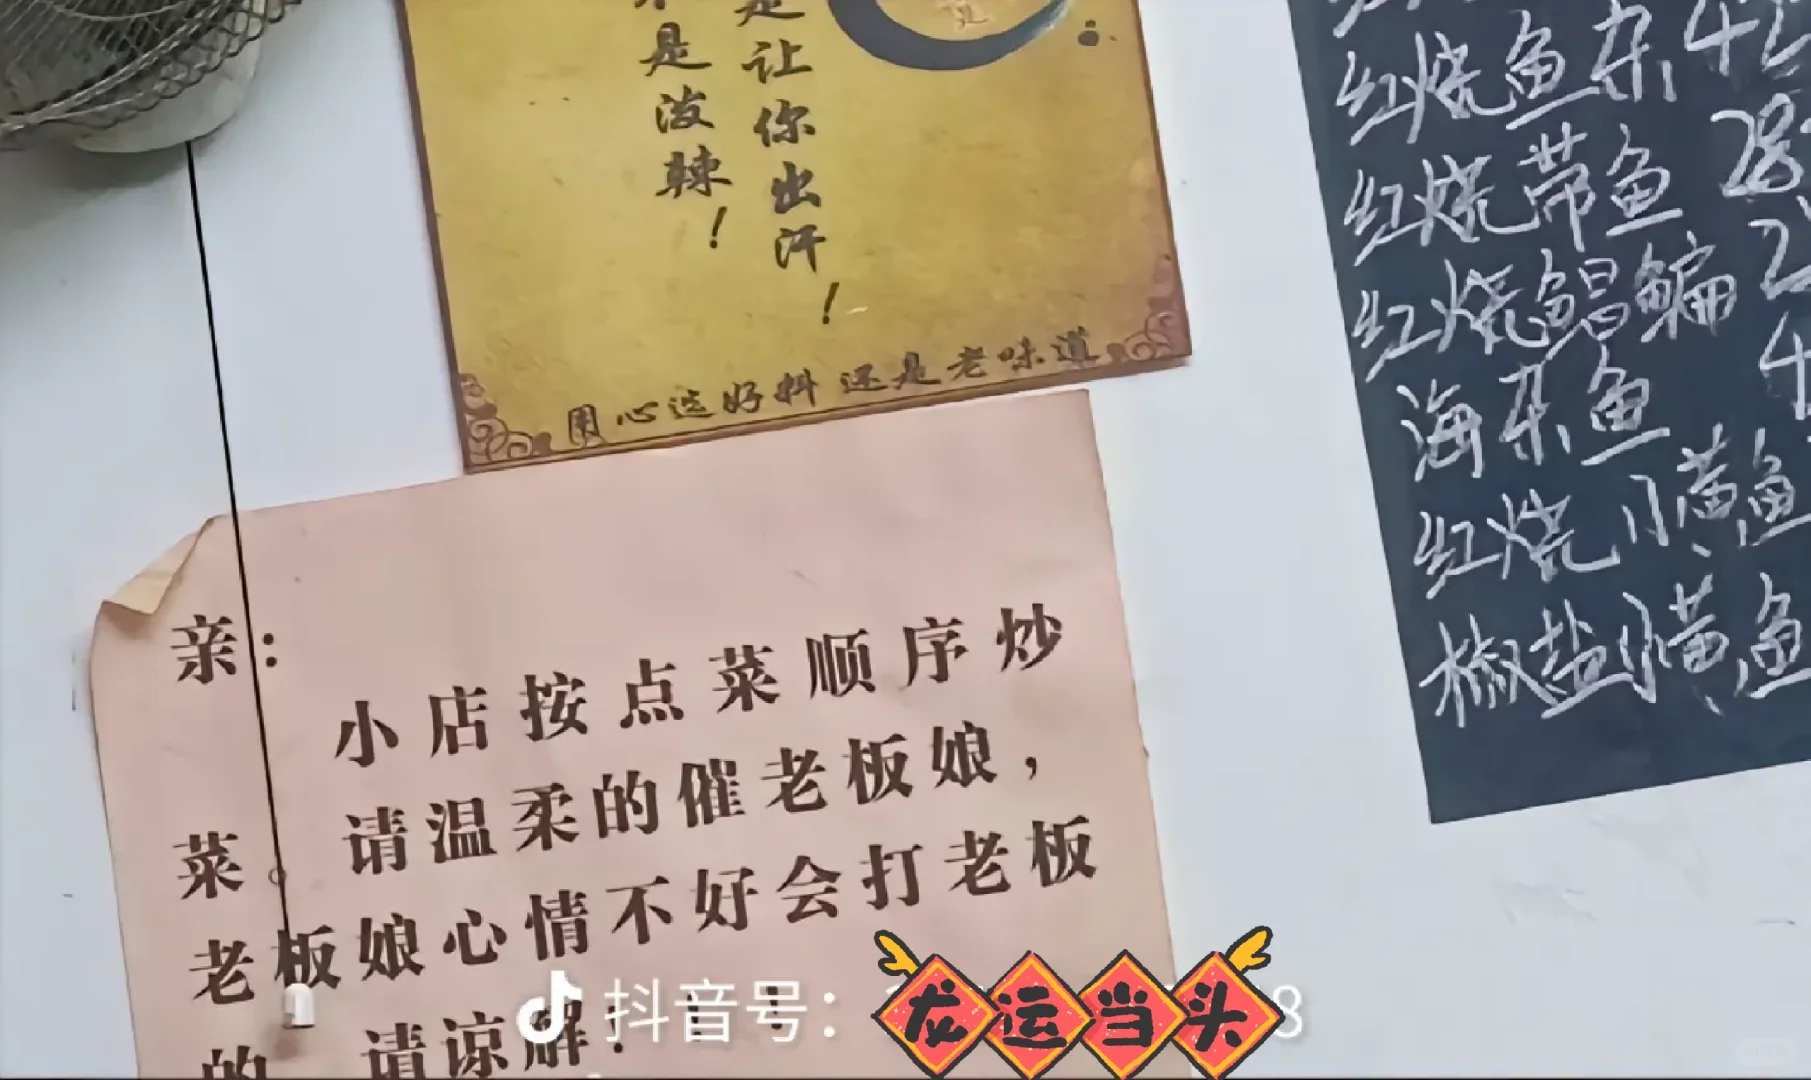 是让你出汗！
是泼辣！
用心选好料 还是老味道
亲：
小店按点菜顺序炒
菜。请温柔的催老板娘，
老板娘心情不好会打老板
的 请谅解！
红烧鱼杂 42
红烧带鱼 28
红烧鲳鳊 2
海杂鱼 4
红烧小黄鱼
椒盐小黄鱼
抖音号：
龙运当头
8